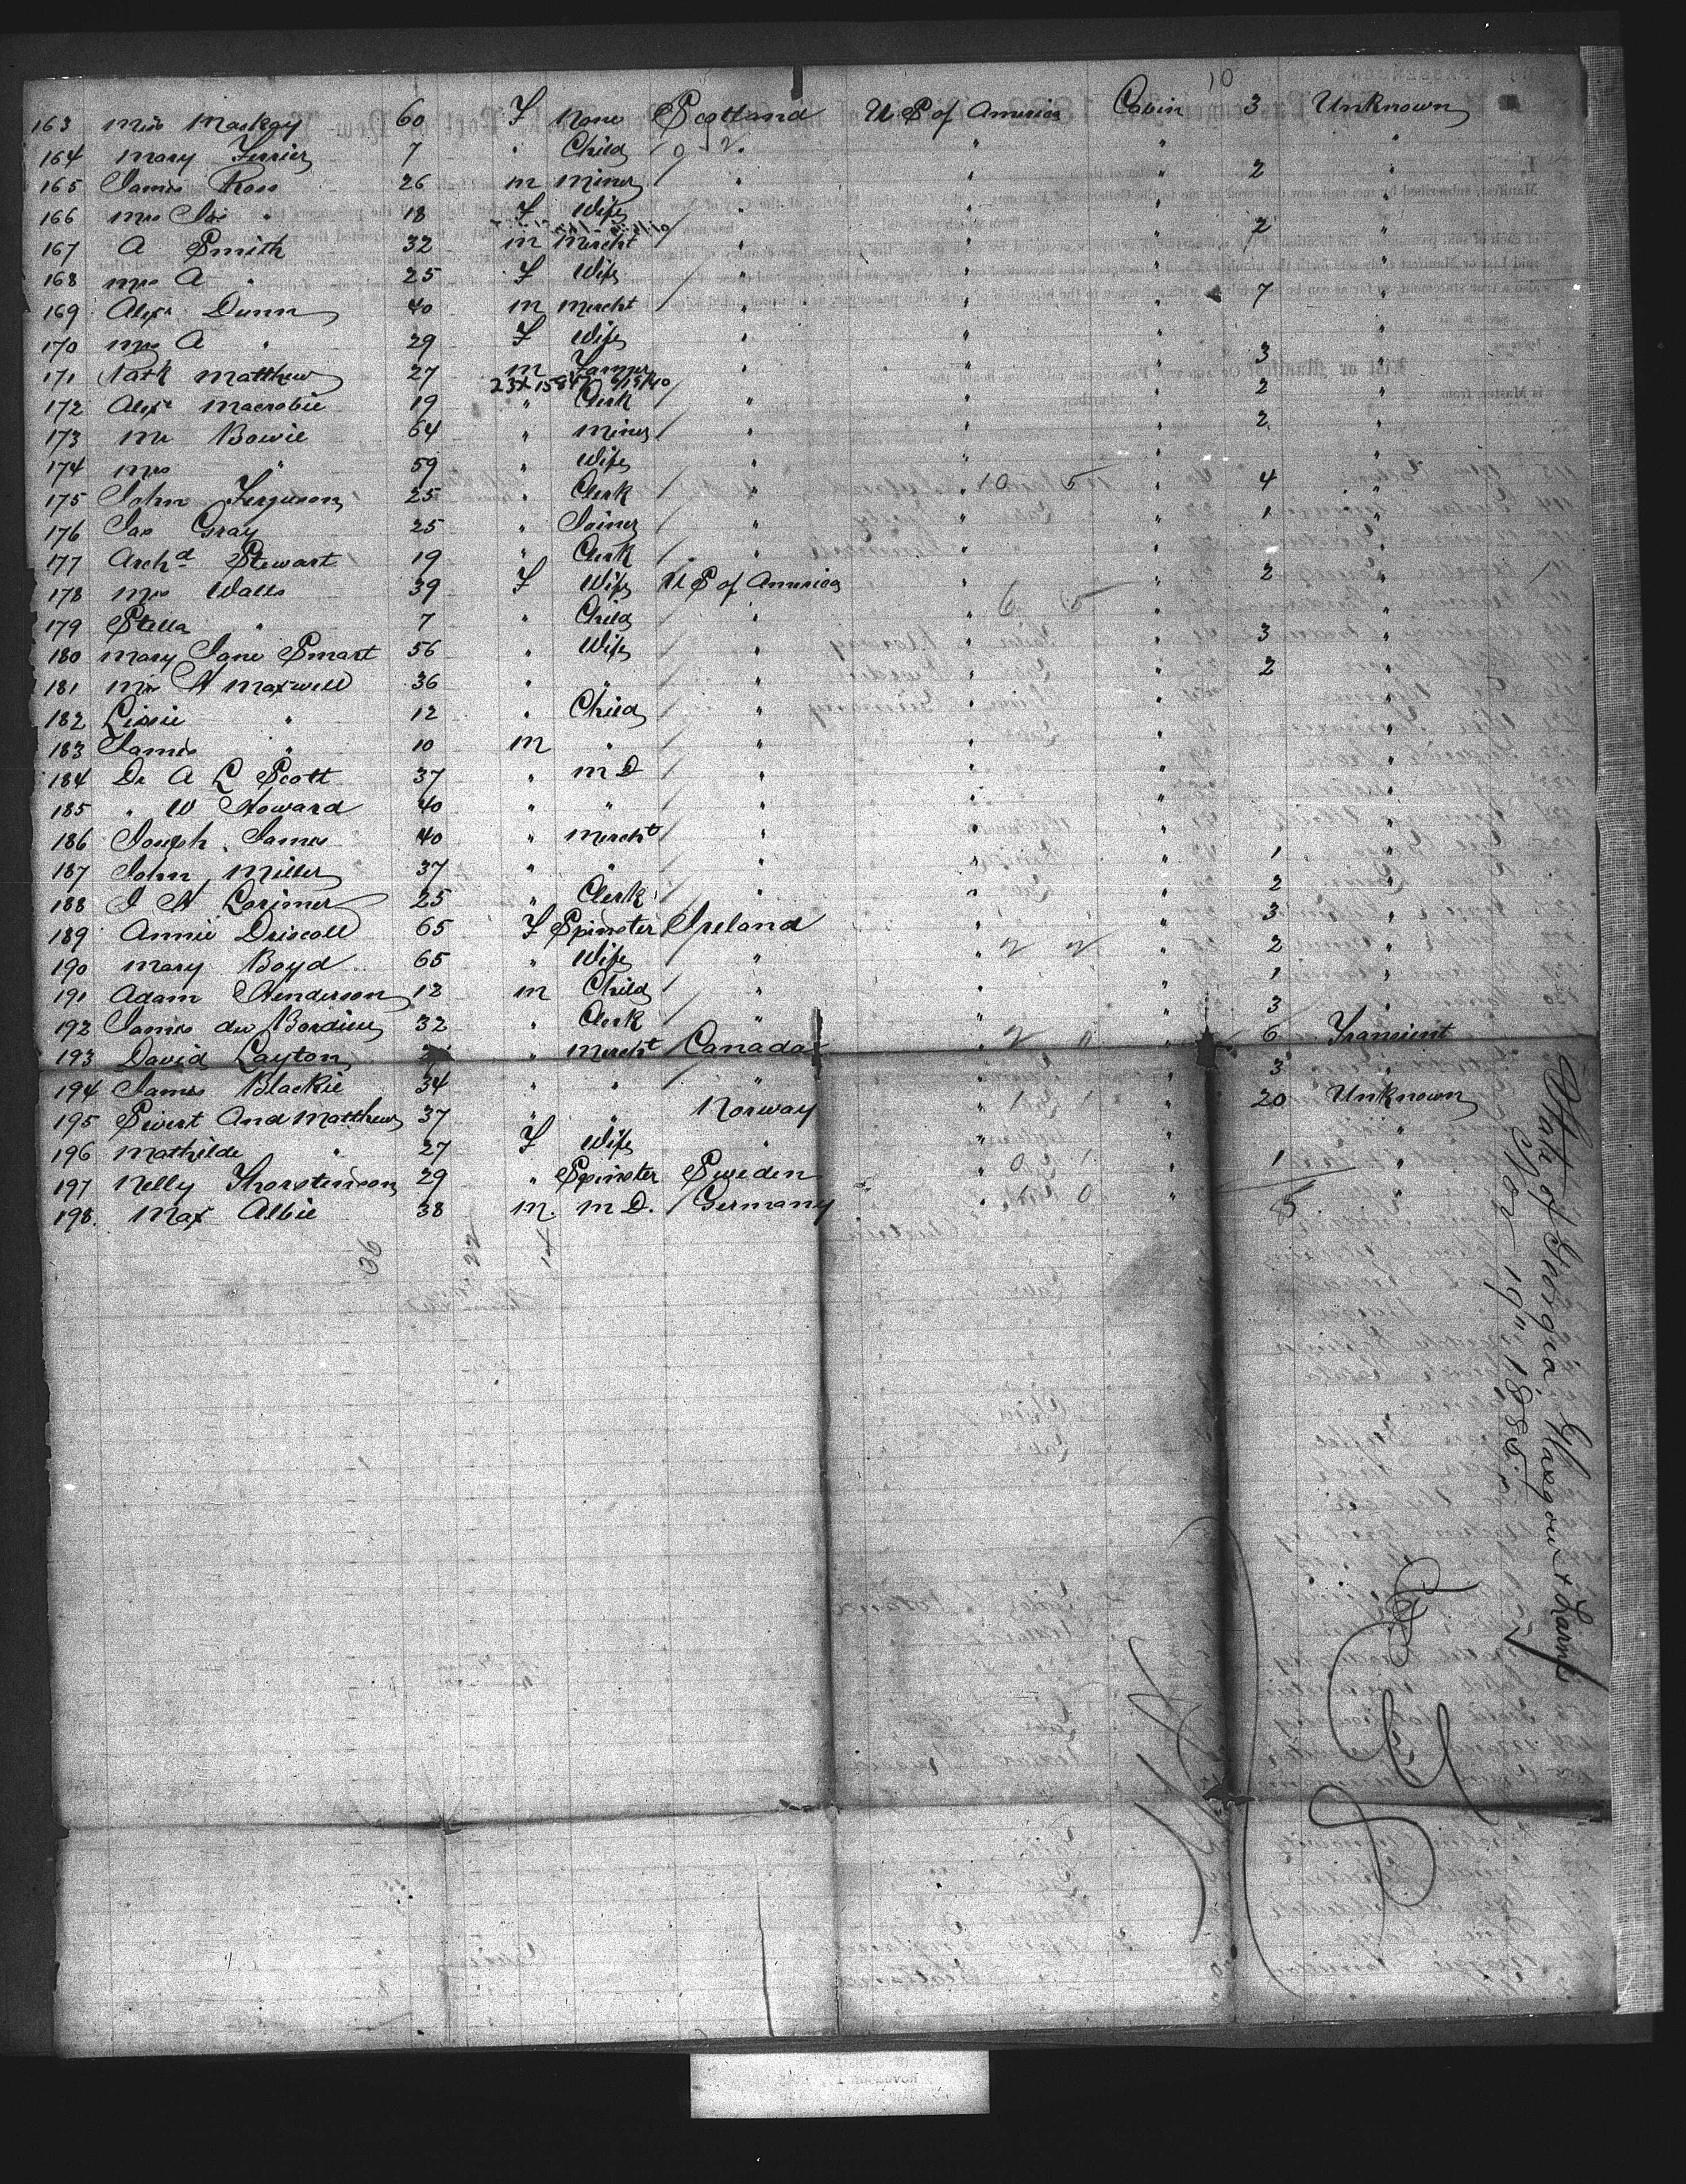 10
163 Miss Mackay 60 F None Scotland U S of America Cabin 3 Unknown
164 Mary Ferrier 7 " Child " " " "
165 James Ross 26 M Miner " " " 2 "
166 Mrs Jas " 18 F Wife " " " "
167 A Smith 32 M Mercht " " " 2 "
168 Mrs A " 25 F Wife " " " "
169 Alexr Dunn 40 M Mercht " " " 7 "
170 Mrs A " 29 F Wife " " " "
171 Matthew 27 M Farmer " " " 3 "
172 Alexr Macrobie 19 " Clerk " " " 2 "
173 Mr Bowie 64 " Miner " " " 2 "
174 Mrs " 59 " Wife " " " "
175 John Ferguson 25 " Clerk " " " 4 "
176 Jas Gray 25 " Joiner " " " 1 "
177 Archd Stewart 19 " Clerk " " " "
178 Mrs Watts 39 F Wife U S of America " " 2 "
179 Stella " 7 " Child " " " "
180 Mary Jane Smart 56 " Wife " " " 3 "
181 Mrs H Maxwell 36 " " " " " 2 "
182 Lizzie " 12 " Child " " " "
183 James " 10 M " " " " "
184 Dr A L Scott 37 " M D " " " "
185 " W Howard 40 " " " " " "
186 Joseph James 40 " Mercht " " " "
187 John Miller 37 " " " " " 1 "
188 J H Lorimer 25 " Clerk " " " 2 "
189 Annie Driscoll 65 F Spinster Ireland " " 3 "
190 Mary Boyd 65 " Wife " " " 2 "
191 Adam Henderson 12 M Child " " " 1 "
192 James du Bordieu 32 " Clerk " " " 3 "
193 David Layton " Mercht Canada " " 6 Transient
194 James Blackie 34 " " " " " 3 "
195 Sivert And Matthew 37 " " Norway " " 20 Unknown
196 Mathilde " 27 F Wife " " " "
197 Nelly Thorstenson 29 " Spinster Sweden " " 1 "
198 Max Albie 38 M. M D. Germany " " 5 "
36 22 14
State of Georgia Glasgow & Larne
Nov 19" 1885